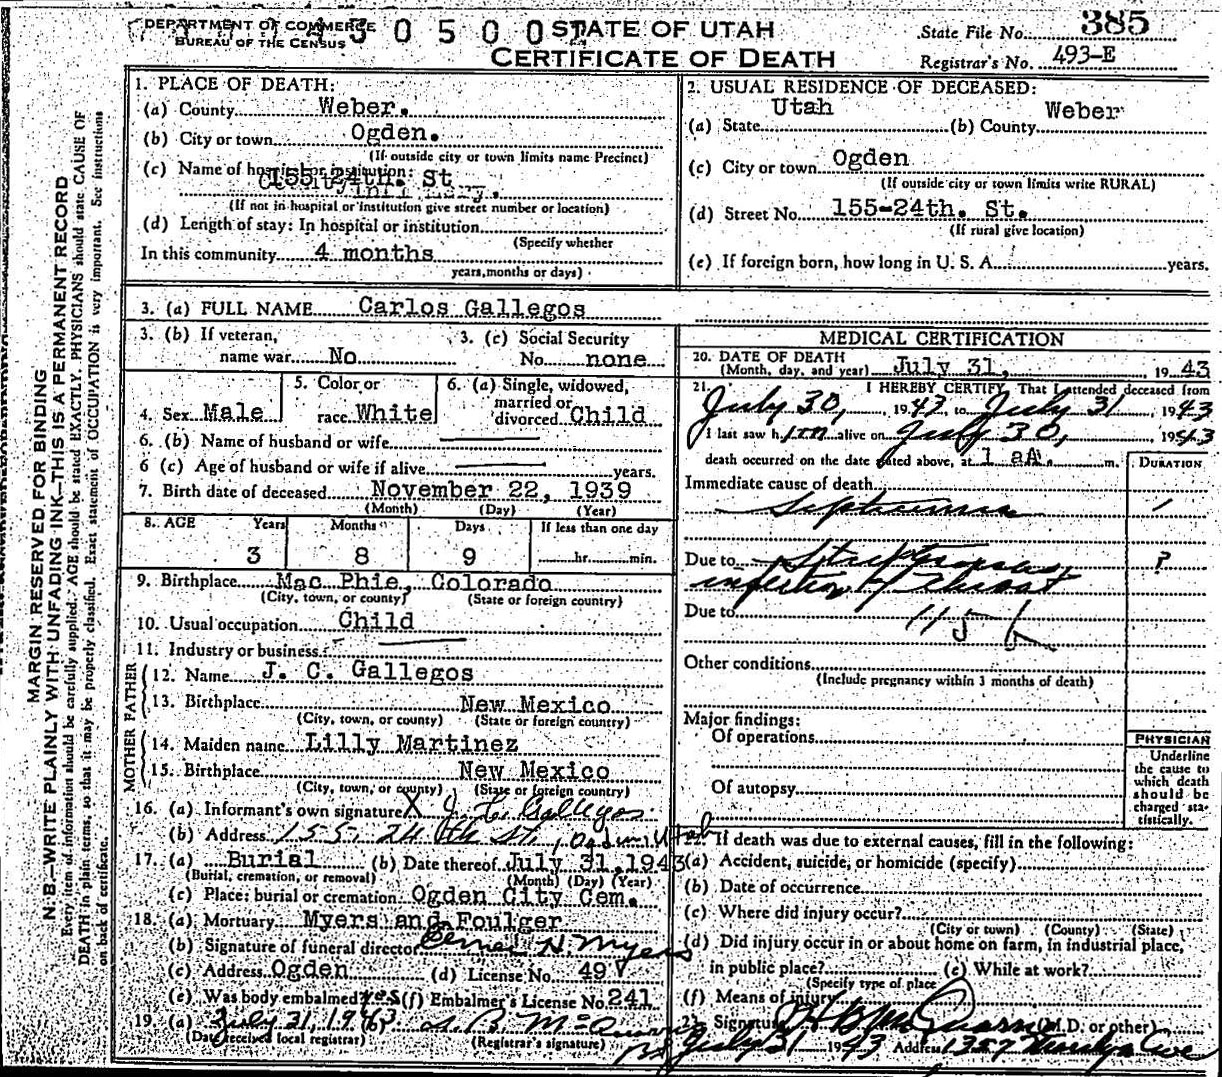 DEPARTMENT OF COMMERCE
BUREAU OF THE CENSUS
4 3 0 5 0 0
STATE OF UTAH
CERTIFICATE OF DEATH
State File No. 385
Registrar's No. 493-E
MARGIN RESERVED FOR BINDING
N. B.—WRITE PLAINLY WITH UNFADING INK—THIS IS A PERMANENT RECORD
Every item of information should be carefully supplied. AGE should be stated EXACTLY. PHYSICIANS should state CAUSE OF
DEATH in plain terms, so that it may be properly classified. Exact statement of OCCUPATION is very important. See instructions
on back of certificate.
1. PLACE OF DEATH:
(a) County Weber.
(b) City or town Ogden.
(If outside city or town limits name Precinct)
(c) Name of hospital or institution:
155-24th. St
(If not in hospital or institution give street number or location)
(d) Length of stay: In hospital or institution
(Specify whether
In this community 4 months
years, months or days)
2. USUAL RESIDENCE OF DECEASED:
(a) State Utah (b) County Weber
(c) City or town Ogden
(If outside city or town limits write RURAL)
(d) Street No. 155-24th. St.
(If rural give location)
(e) If foreign born, how long in U. S. A. years.
3. (a) FULL NAME Carlos Gallegos
3. (b) If veteran, name war No
3. (c) Social Security No. none
4. Sex Male
5. Color or race White
6. (a) Single, widowed, married or divorced Child
6. (b) Name of husband or wife
6 (c) Age of husband or wife if alive years.
7. Birth date of deceased November 22, 1939
(Month) (Day) (Year)
8. AGE Years Months Days If less than one day
3 8 9 hr. min.
9. Birthplace Mac Phie, Colorado
(City, town, or county) (State or foreign country)
10. Usual occupation Child
11. Industry or business
FATHER
12. Name J. C. Gallegos
13. Birthplace New Mexico
(City, town, or county) (State or foreign country)
MOTHER
14. Maiden name Lilly Martinez
15. Birthplace New Mexico
(City, town, or county) (State or foreign country)
16. (a) Informant's own signature X J. C. Gallegos
(b) Address 155-24th St, Ogden Utah
17. (a) Burial (b) Date thereof July 31, 1943
(Burial, cremation, or removal) (Month) (Day) (Year)
(c) Place: burial or cremation Ogden City Cem.
18. (a) Mortuary Myers and Foulger
(b) Signature of funeral director H. Myers
(c) Address Ogden (d) License No. 49
(e) Was body embalmed? yes (f) Embalmer's License No. 241
19. (a) July 31, 1943
(Date received local registrar) (Registrar's signature)
MEDICAL CERTIFICATION
20. DATE OF DEATH
(Month, day, and year) July 31, 1943
21. I HEREBY CERTIFY, That I attended deceased from
July 30, 1943, to July 31, 1943
I last saw him alive on July 30, 1943
death occurred on the date stated above, at 1 aA. m.
DURATION
Immediate cause of death
Septicemia
Due to Streptococcus
infection of Throat
?
Due to
115 b
Other conditions
(Include pregnancy within 3 months of death)
Major findings:
Of operations
Of autopsy
PHYSICIAN
Underline
the cause to
which death
should be
charged sta-
tistically.
22. If death was due to external causes, fill in the following:
(a) Accident, suicide, or homicide (specify)
(b) Date of occurrence
(c) Where did injury occur?
(City or town) (County) (State)
(d) Did injury occur in or about home on farm, in industrial place,
in public place? (e) While at work?
(Specify type of place
(f) Means of injury
23. Signature (M.D. or other)
July 31 1943 Address 1357